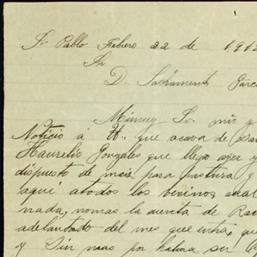 Sn Pablo Febrero 22 de 191
Sr
D. Sacramento Garc
Mi muy Sr. mio y
Noticio á U. que acava de
Haurelio Gonzales que llego ayer y
dispuesto de mais para pastura y
aquí atodos los vecinos
nada, nomas la cuenta de Ra
adelantado del mes que entra, qu
y Sin mas por